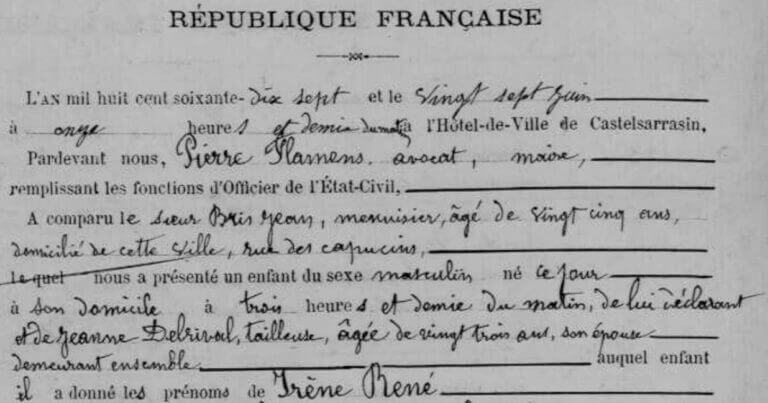 RÉPUBLIQUE FRANÇAISE
L'AN mil huit cent soixante-dix sept et le vingt sept juin
à onze heures et demie du matin à l'Hôtel-de-Ville de Castelsarrasin,
Pardevant nous, Pierre Flamens, avocat, maire,
remplissant les fonctions d'Officier de l'État-Civil,
A comparu le sieur Bris Jean, menuisier, âgé de vingt cinq ans,
domicilié de cette ville, rue des capucins,
lequel nous a présenté un enfant du sexe masculin né ce jour
à son domicile à trois heures et demie du matin, de lui déclarant
et de Jeanne Delrival, tailleuse, âgée de vingt trois ans, son épouse
demeurant ensemble auquel enfant
il a donné les prénoms de Irène René